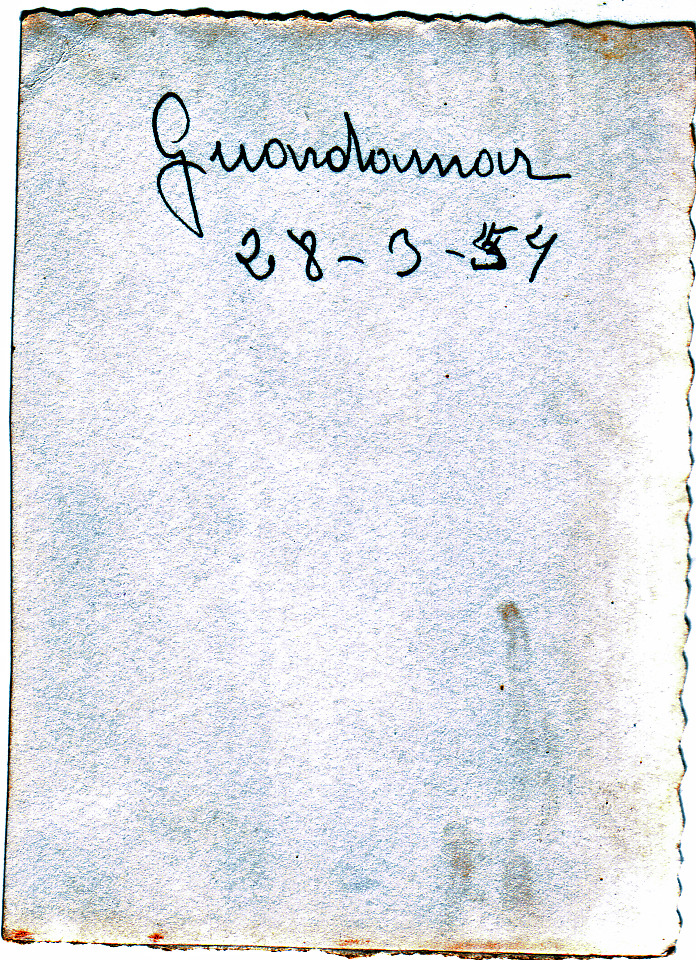 Guardamar
28-3-57